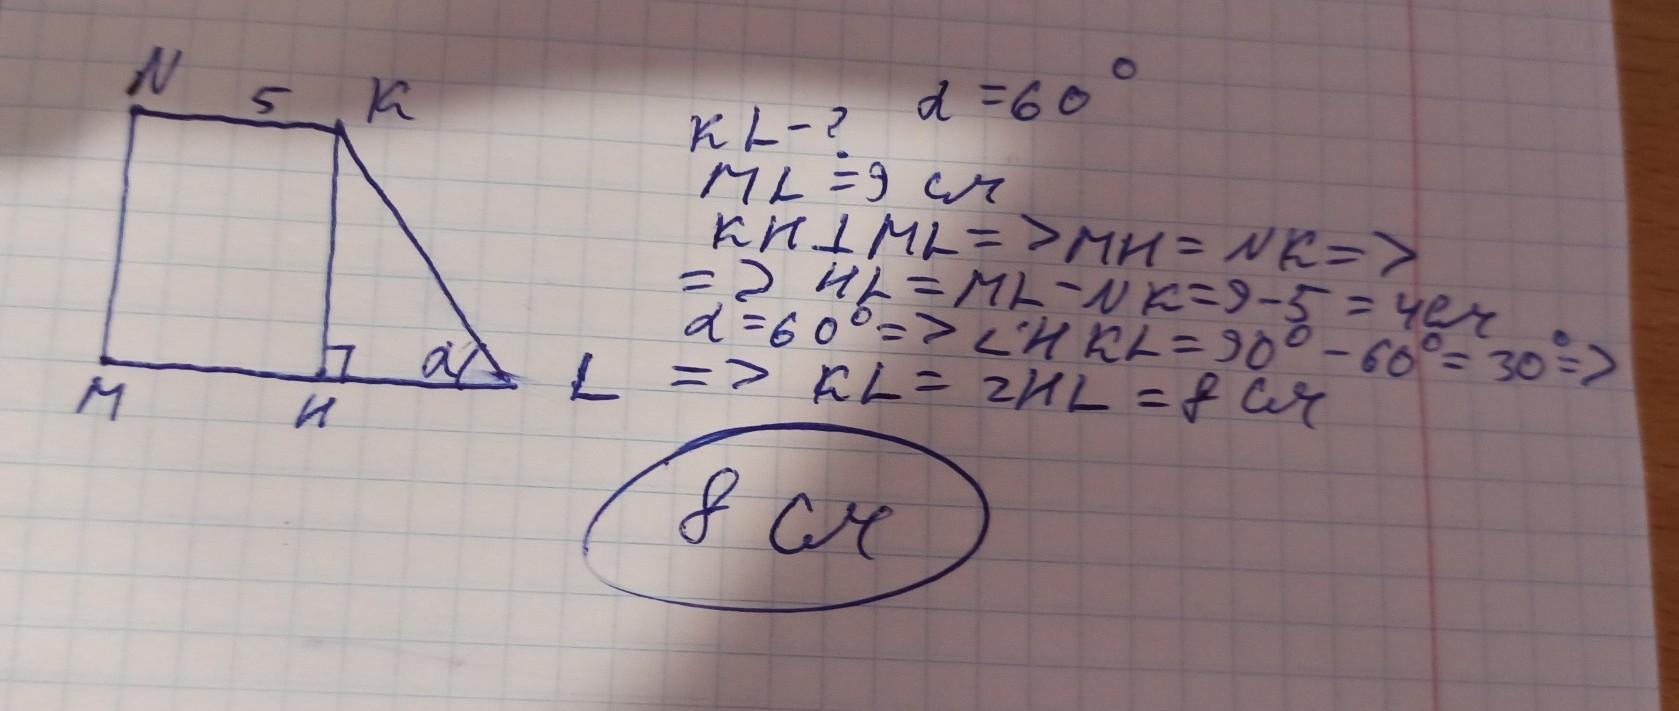 N 5 K
M H α L
α = 60°
KL - ?
ML = 9 см
KH ⊥ ML => MH = NK =>
=> HL = ML - NK = 9 - 5 = 4 см
α = 60° => ∠HKL = 90° - 60° = 30° =>
=> KL = 2HL = 8 см
8 см